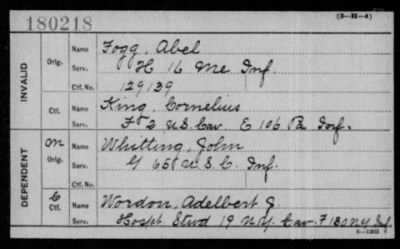 180218
(3-H-4)
INVALID
Orig.
Name Fogg, Abel
Serv. H 16 Me Inf.
Ctf. No. 129139
Ctf.
Name King, Cornelius
Serv. F 2 U.S. Cav E 106 Pa Inf.
DEPENDENT
on
Orig.
Name Whitting, John
Serv. G 65 U.S.C. Inf.
Ctf. No.
Ctf.
Name Wordon, Adelbert J.
Serv. Hospt Stwd 19 N.Y. Cav. F 130 N.Y. Inf